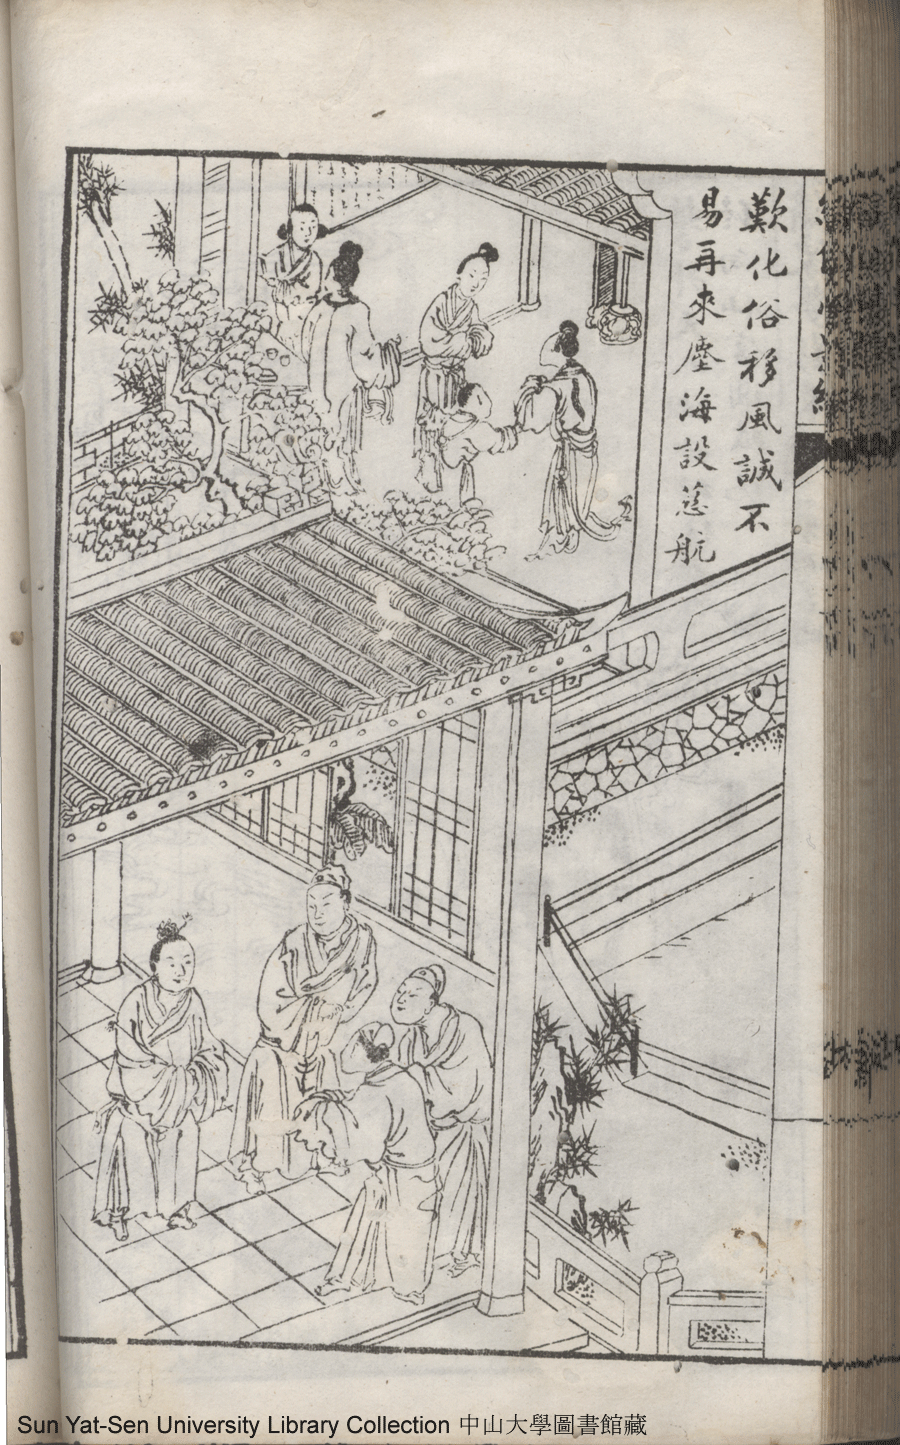 歎化俗移風誠不
易再來塵海設慈航
Sun Yat-Sen University Library Collection 中山大學圖書館藏